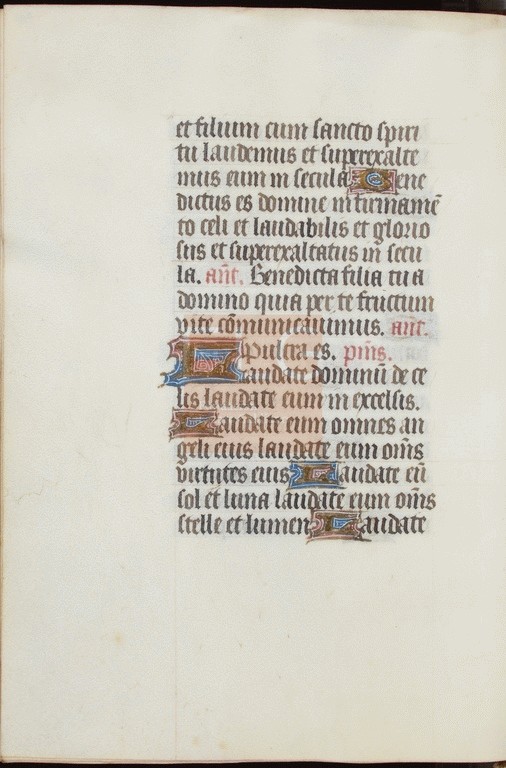 et filium cum sancto spiri
tu laudemus et superexalte
mus eum in secula Bene
dictus es domine in firmamē
to celi et laudabilis et glorio
sus et superexaltatus in secu
la. añt. Benedicta filia tu a
domino quia per te fructum
vite cōmunicauimus. añt.
Pulcra es. pm̄s.
Laudate dominū de ce
lis laudate eum in excelsis.
Laudate eum omnes an
geli eius laudate eum om̄s
virtutes eius Laudate eū
sol et luna laudate eum om̄s
stelle et lumen Laudate